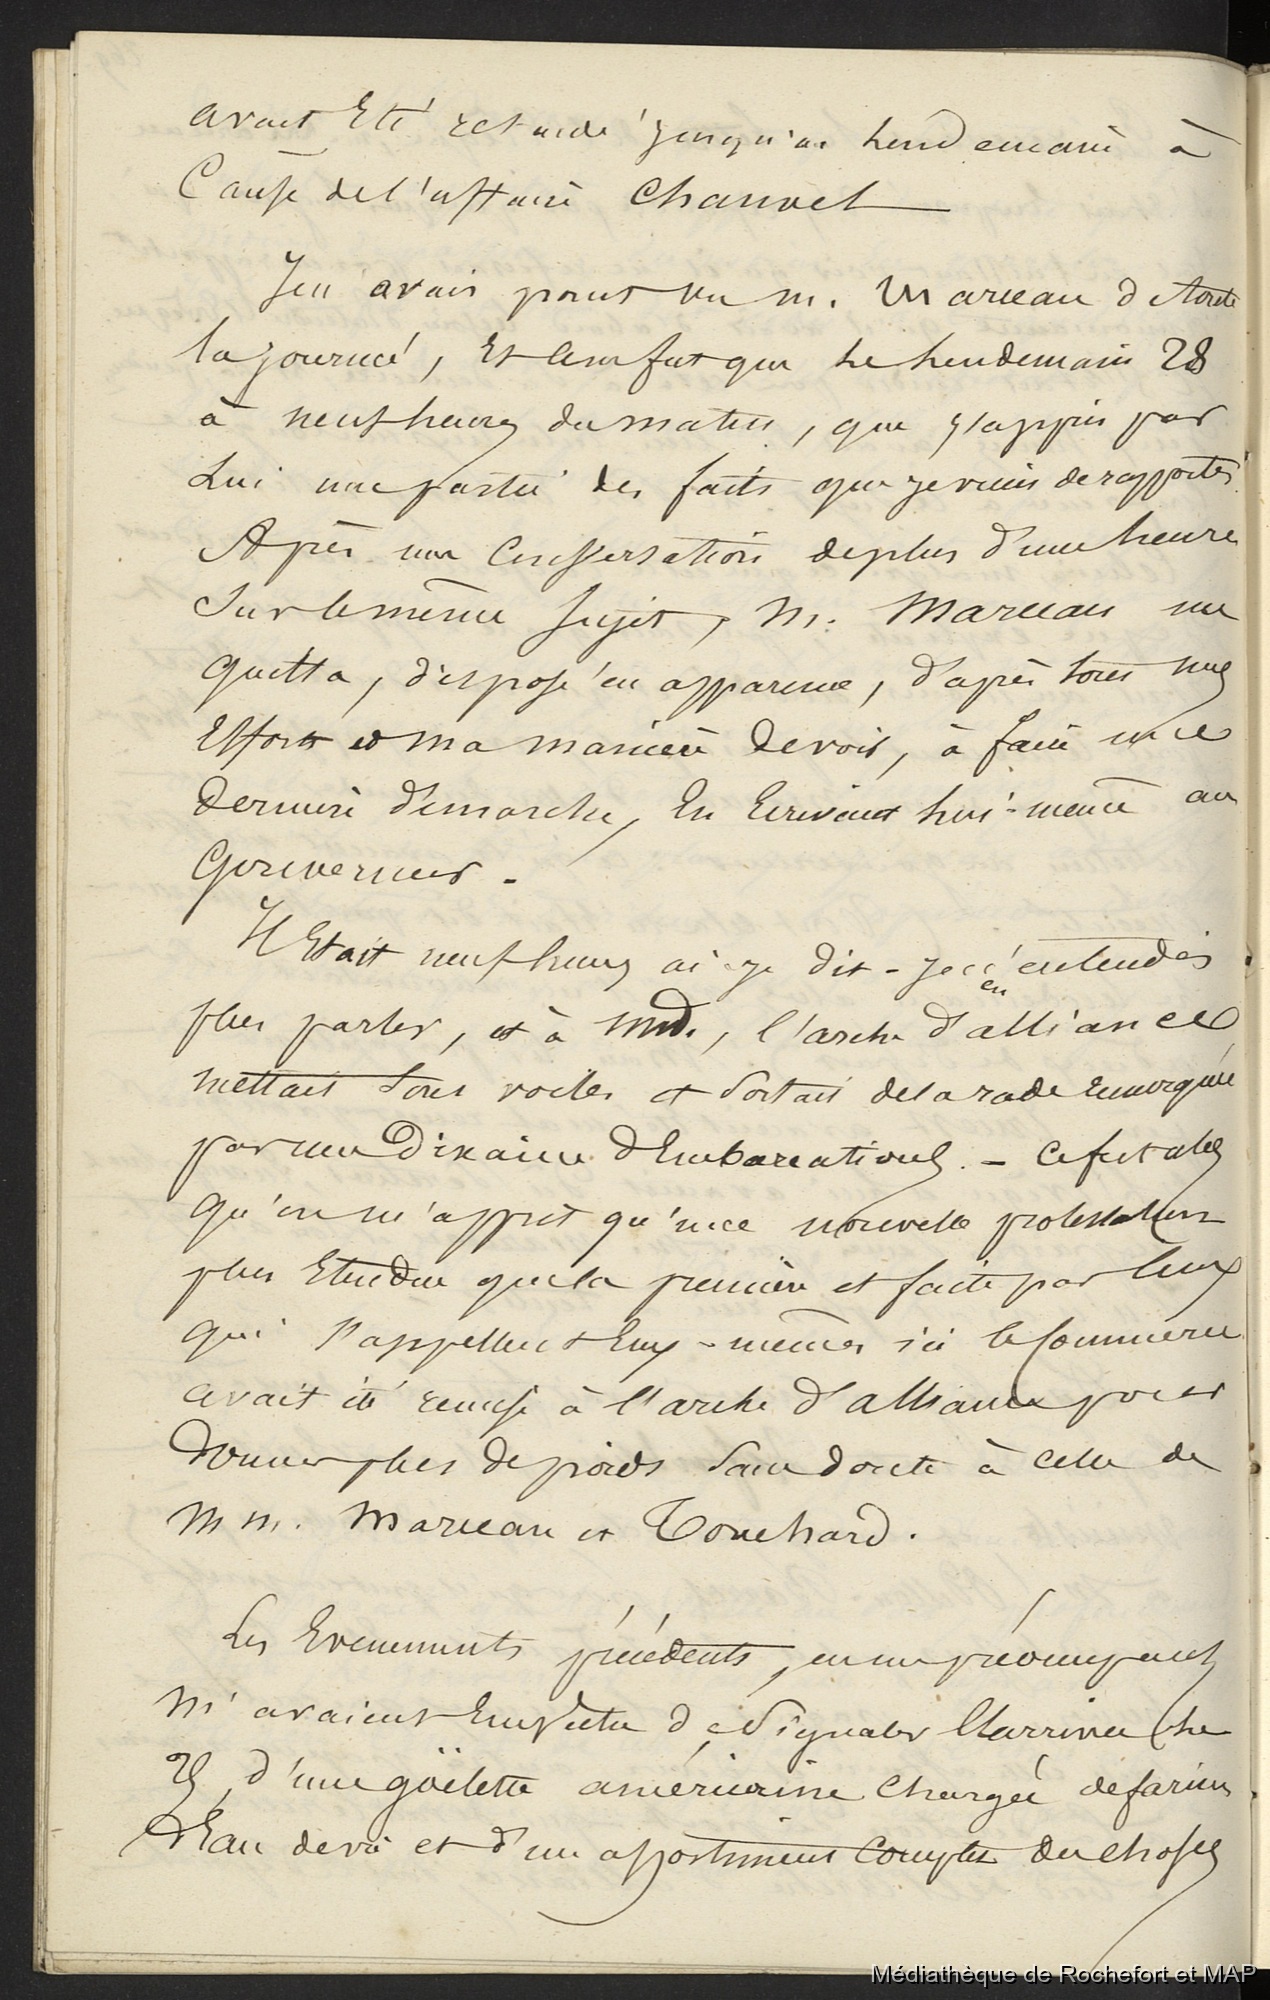 avait Eté retardé jusqu'au lendemain à
Cause de l'affaire Chauvel
Je n'avais point vu m. Marceau de toute
la journée, Et ce ne fut que le lendemain 28
à neuf heures du matin, que j'appris par
Lui une partie des faits que je viens de rapporter.
Après une Conversation de plus d'une heure
Sur le même Sujet, M. Marceau me
quitta, disposé en apparence, d'après tous mes
Efforts et ma manière de voir, à faire une
dernière démarche, En Ecrivant lui-même au
Gouverneur.
Il Etait neuf heures ai-je dit - je n'entendis
en
plus parler, et à midi, l'arche d'alliance
mettait Sous voiles et Sortait de la rade remorquée
par une Dixaine d'Embarcations. - Ce fut alors
qu'on m'apprit qu'une nouvelle protestation
plus Etendue que la première et faite par Ceux
qui s'appellent Eux-mêmes ici le Commerce
avait été remise à l'arche d'alliance pour
donner plus de poids Sans doute à Celle de
M m. Marceau et Touchard.
Les Evenements précédents, en me préoccupant
m'avaient Empêché de Signaler l'arrivée, le
d'une goëlette américaine Chargée de farine
d'Eau de vie et d'un assortiment Complet de choses
Médiathèque de Rochefort et MAP